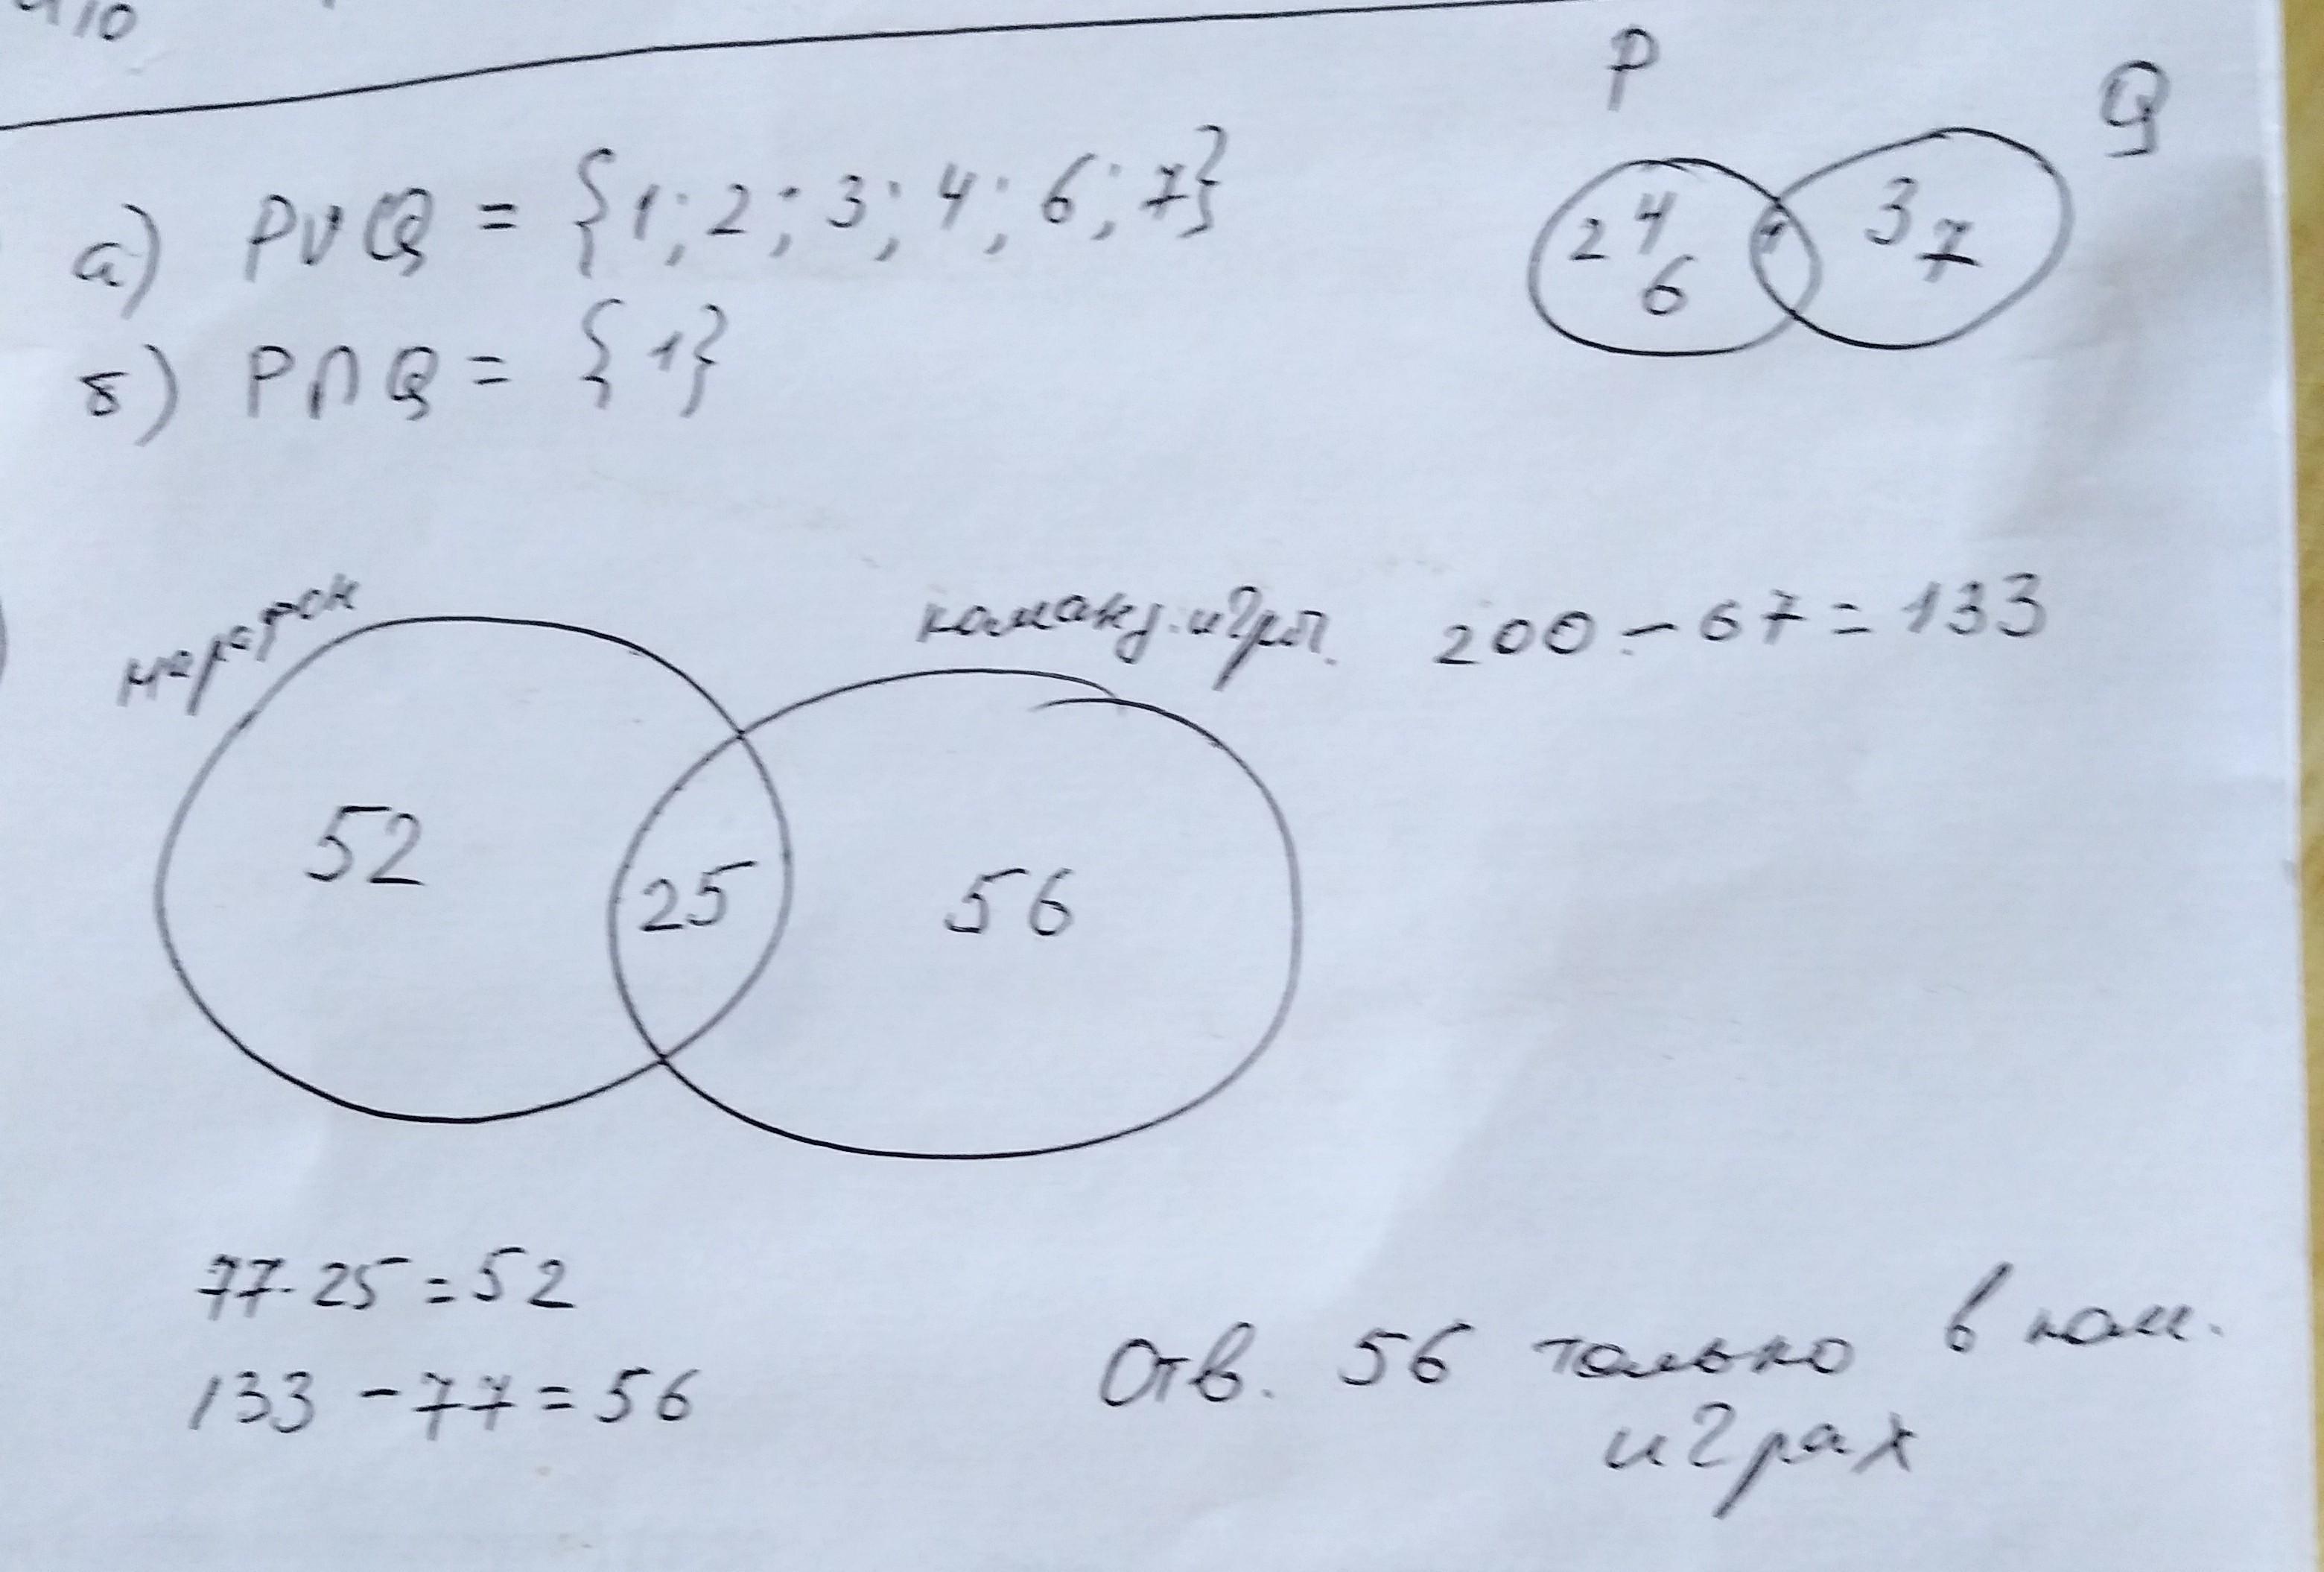 10
P
Q
а) P∪Q = {1; 2; 3; 4; 6; 7}
2 4 6
1
3 7
б) P∩Q = {1}
марафон
команд. игры.
200 - 67 = 133
52
25
56
77-25=52
133 - 77 = 56
Отв. 56 только в ком.
играх